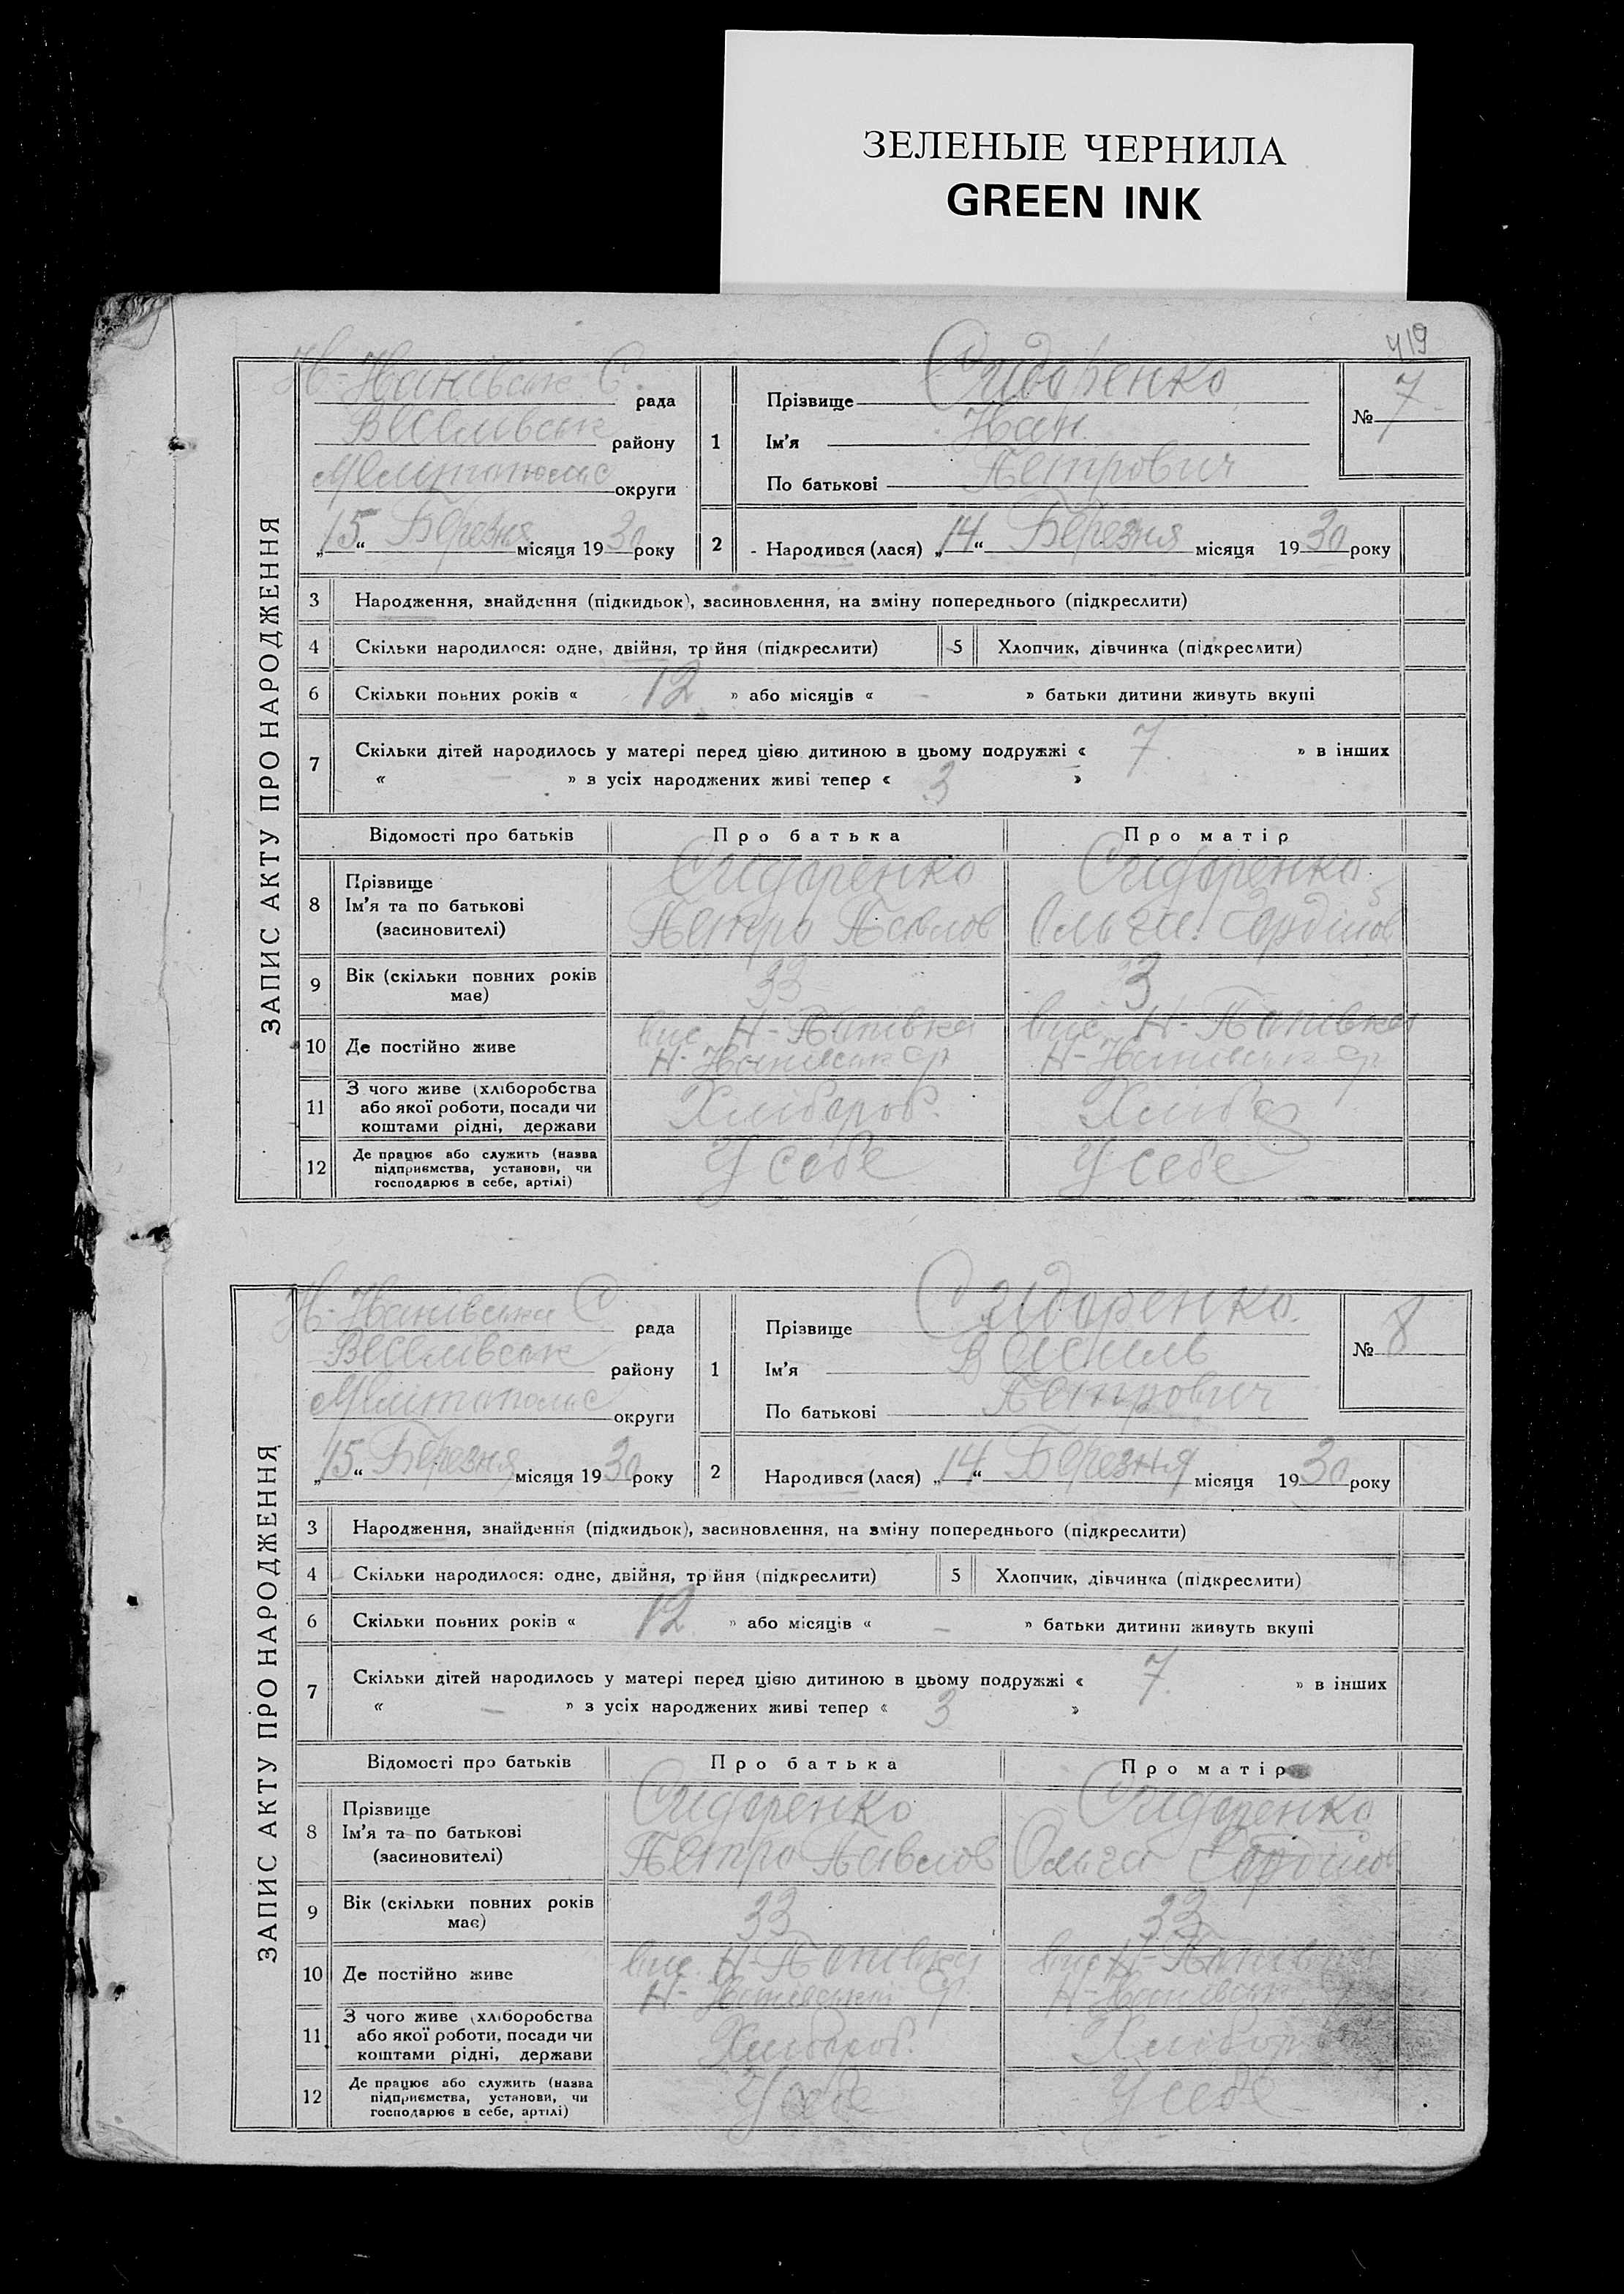 ЗЕЛЕНЫЕ ЧЕРНИЛА
GREEN INK
419
ЗАПИС АКТУ ПРО НАРОДЖЕННЯ
Н- С. рада
Веселивськ району
Мелитопольс округи
„15“ Березня місяця 1930 року
1
Прізвище Сидоренко
Ім'я Иван
По батькові Петрович
№ 7
2 Народився (лася) „14“ Березня місяця 1930 року
3 Народження, знайдення (підкидьок), засиновлення, на зміну попереднього (підкреслити)
4 Скільки народилося: одне, двійня, тр йня (підкреслити) 5 Хлопчик, дівчинка (підкреслити)
6 Скільки повних років « 12 » або місяців « - » батьки дитини живуть вкупі
7 Скільки дітей народилось у матері перед цією дитиною в цьому подружжі « 7 » в інших
« - » з усіх народжених живі тепер « 3 »
Відомості про батьків Про батька Про матір
8 Прізвище
Ім'я та по батькові
(засиновителі)
Сидоренко
Петро Павлов
Сидоренко
Ольга
9 Вік (скільки повних років
має)
33
3
10 Де постійно живе
вис. Н-Попівка
Н- ср
вис. Н-Попівка
Н- ср
11 З чого живе (хліборобства
або якої роботи, посади чи
коштами рідні, держави
Хлибороб.
Хлибо
12 Де працює або служить (назва
підприємства, установи, чи
господарює в себе, артілі)
У себе
У себе
ЗАПИС АКТУ ПРО НАРОДЖЕННЯ
Н- С рада
Веселивськ району
Мелитопольс округи
„15“ Березня місяця 1930 року
1
Прізвище Сидоренко.
Ім'я Василь
По батькові Петрович
№ 8
2 Народився (лася) „14“ Березня місяця 1930 року
3 Народження, знайдення (підкидьок), засиновлення, на зміну попереднього (підкреслити)
4 Скільки народилося: одне, двійня, тр йня (підкреслити) 5 Хлопчик, дівчинка (підкреслити)
6 Скільки повних років « 12 » або місяців « - » батьки дитини живуть вкупі
7 Скільки дітей народилось у матері перед цією дитиною в цьому подружжі « 7 » в інших
« - » з усіх народжених живі тепер « 3 »
Відомості про батьків Про батька Про матір
8 Прізвище
Ім'я та по батькові
(засиновителі)
Сидоренко
Петро Павлов
Сидоренко
Ольга
9 Вік (скільки повних років
має)
33
33
10 Де постійно живе
вис. Н-Попівка
Н- ср.
вис Н-Попівка
Н-
11 З чого живе (хліборобства
або якої роботи, посади чи
коштами рідні, держави
Хлибороб.
12 Де працює або служить (назва
підприємства, установи, чи
господарює в себе, артілі)
У себе
У себе